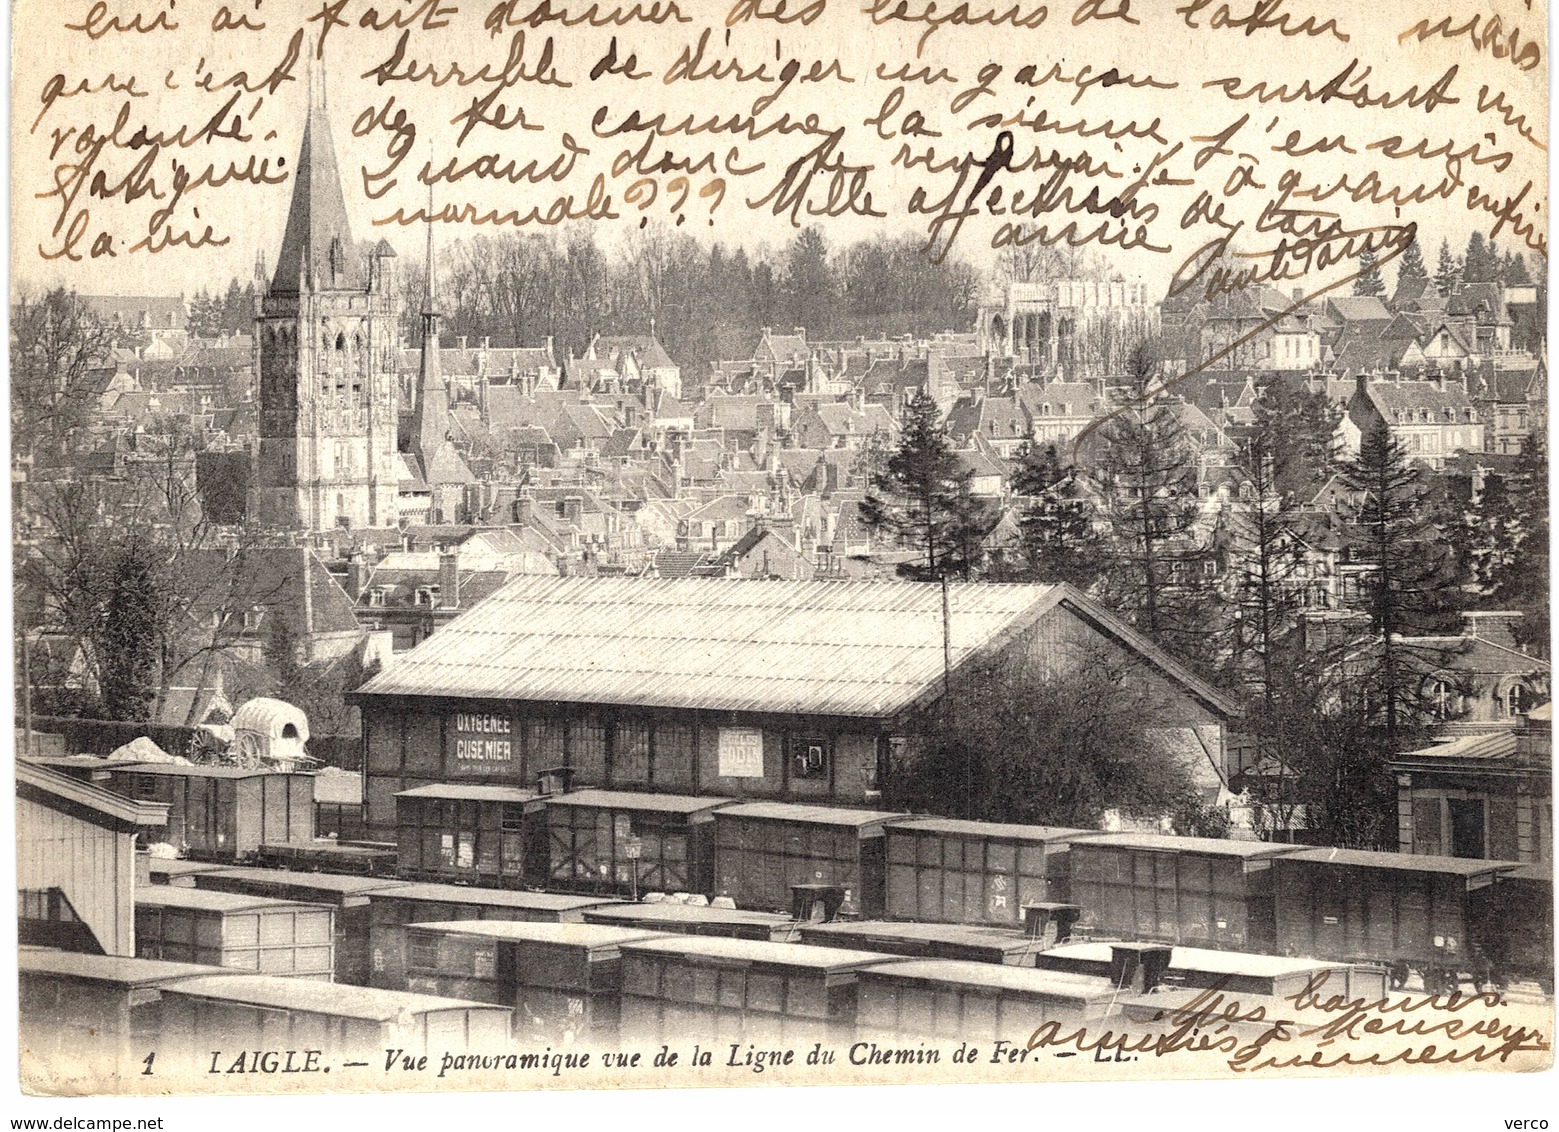 lui ai fait donner des leçons de latin mais
que c'est terrible de diriger un garçon surtout une
volonté de fer comme la sienne J'en suis
fatiguée. Quand donc te reverrai-je à quand enfin
la vie normale??? Mille affections de ton
amie
OXYGENEE
CUSENIER
Mes bonnes
amitiés à Monsieur
1 LAIGLE. — Vue panoramique vue de la Ligne du Chemin de Fer. — LL.
www.delcampe.net
verco